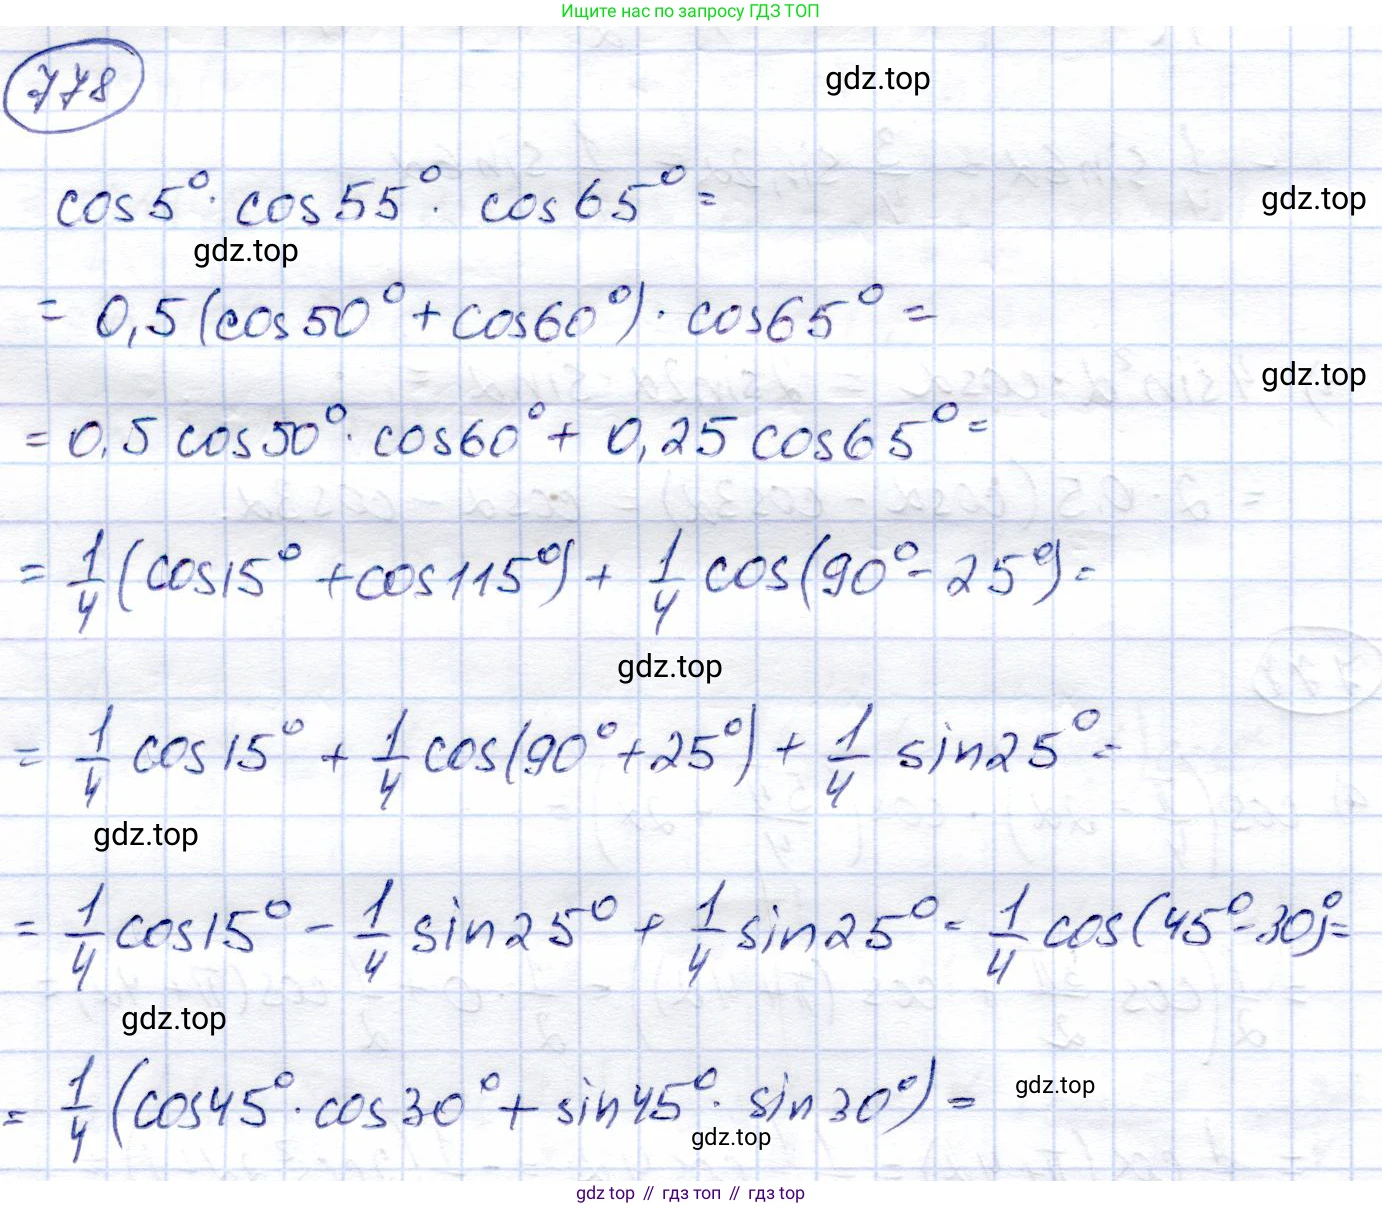 Ищите нас по запросу ГДЗ ТОП
778
gdz.top
cos5° · cos55° · cos65° =
gdz.top
gdz.top
= 0,5(cos50° + cos60°) · cos65° =
gdz.top
= 0,5 cos50° · cos60° + 0,25 cos65° =
= 1/4 (cos15° + cos115°) + 1/4 cos(90° - 25°) =
gdz.top
= 1/4 cos15° + 1/4 cos(90° + 25°) + 1/4 sin25° =
gdz.top
= 1/4 cos15° - 1/4 sin25° + 1/4 sin25° = 1/4 cos(45° - 30°) =
gdz.top
= 1/4 (cos45° · cos30° + sin45° · sin30°) =
gdz.top
gdz.top
gdz top // гдз топ // gdz top